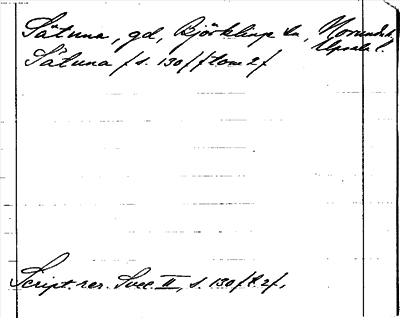 Sätuna, gd, Björklinge sn, Norunda h.
Upsala l.
Sätuna /s. 130/ /tom 2/
Script. rer. Svec. II, s. 130 /t. 2/,